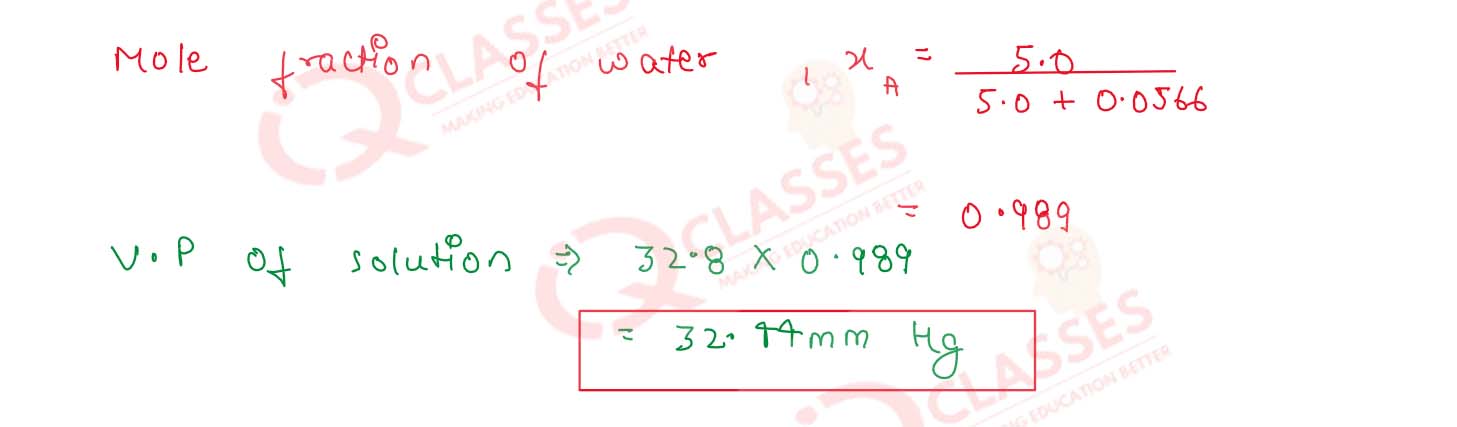 Mole fraction of water , x_A = 5.0 / 5.0 + 0.0566
= 0.989
V.P of solution ⇒ 32.8 × 0.989
= 32.44mm Hg
CLASSES
MAKING EDUCATION BETTER
CLASSES
MAKING EDUCATION BETTER
CLASSES
NG EDUCATION BETTER